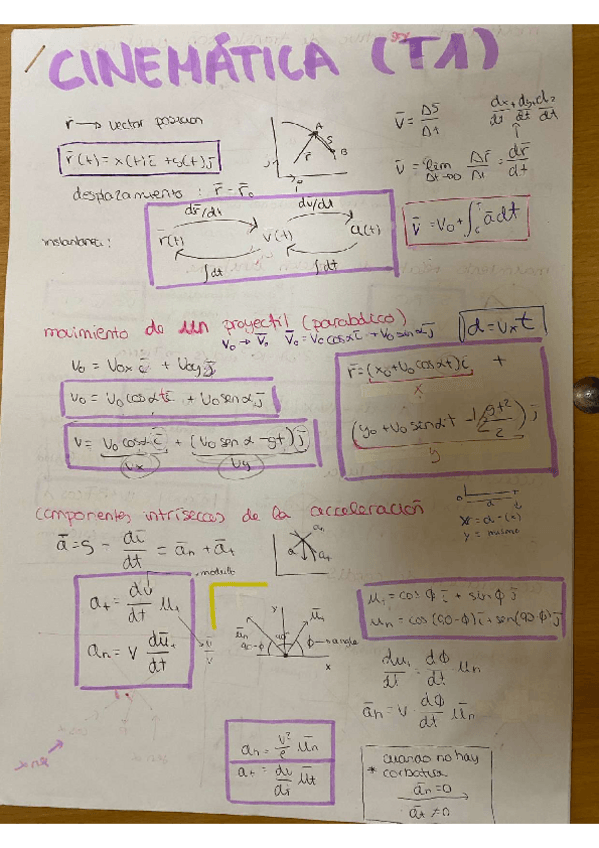 CINEMÁTICA (T1)
r → vector posicion
r̄(t) = x(t)ī + y(t)j̄
desplazamiento : r̄ - r̄₀
A
B
S
r̄
v̄ = ΔS/Δt
dx/dt + dy/dt + dz/dt
v̄ = lim Δt→0 Δr̄/Δt = dr̄/dt
instantanea :
dr̄/dt
dv/dt
r̄(t)
v(t)
a(t)
∫dt
∫dt
v̄ = v₀ + ∫ ā dt
movimiento de un proyectil (parabolico)
v₀ → v̄₀ v̄₀ = v₀ cos α ī + v₀ sin α j̄
d = vₓ t
v₀ = v₀ₓ ī + v₀y j̄
v₀ = v₀ cos α ī + v₀ sen α j̄
v = v₀ cos α ī + (v₀ sen α - gt) j̄
vx
vy
r̄ = (x₀ + v₀ cos α t) ī +
x
(y₀ + v₀ sin α t - 1/2 gt²) j̄
y
componentes intrísecas de la acceleración
y = mismo
dt = āₙ + āₜ
a
aₙ
aₜ
modulo
aₜ = dv/dt μₜ
aₙ = v dūₜ/dt
v̄/v
y
μ̄ₙ
90-ϕ
90°
μ̄ₜ
ϕ → angle
x
μₜ = cos ϕ ī + sin ϕ j̄
μₙ = cos (90-ϕ) ī + sen (90-ϕ) j̄
duₜ/dt = dϕ/dt μₙ
āₙ = v · dϕ/dt μ̄ₙ
aₙ = v²/ρ μ̄ₙ
aₜ = dv/dt μ̄ₜ
cuando no hay
* corbatura
āₙ = 0
āₜ ≠ 0